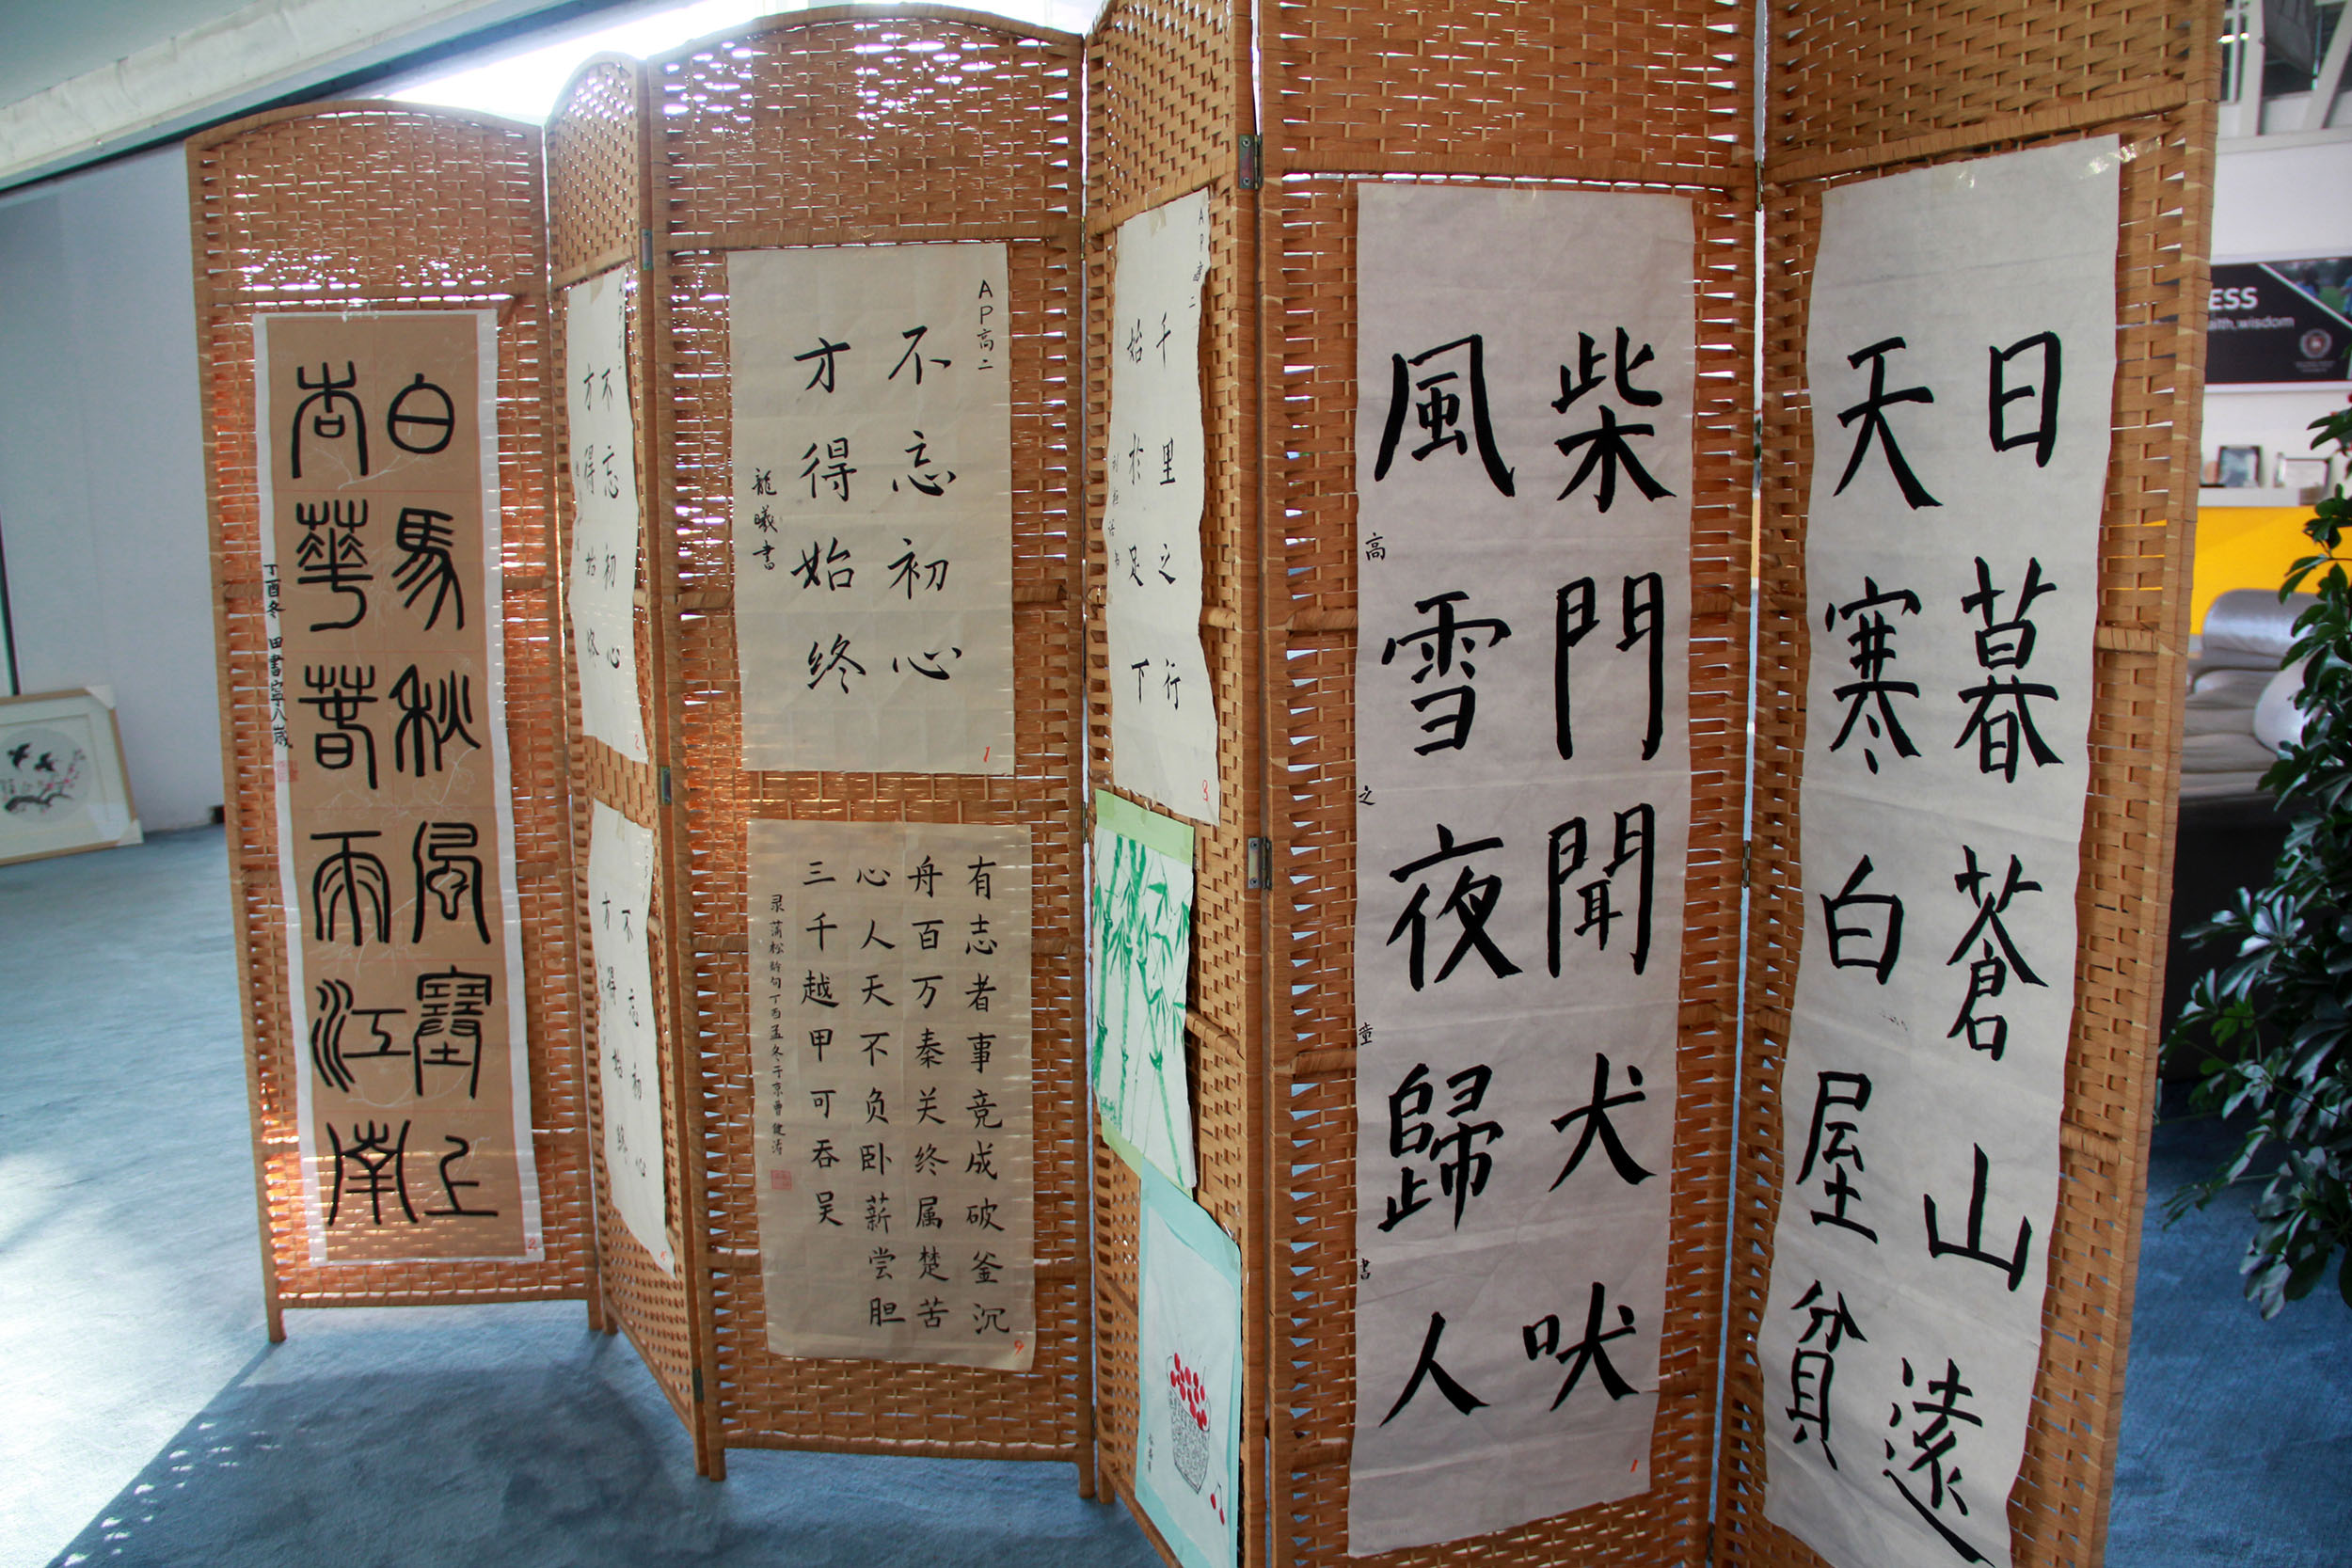 日暮蒼山遠
天寒白屋貧
柴門聞犬吠
風雪夜歸人
高之童書
AP高二
千里之行
始於足下
3
AP高二
不忘初心
才得始终
龍曦書
1
有志者事竞成破釜沉
舟百万秦关终属楚苦
心人天不负卧薪尝胆
三千越甲可吞吴
录蒲松龄句丁酉孟冬于京曹健涛
9
不忘初心
才得始终
2
不忘初心
才得始终
白馬秋风塞上
杏華春雨江南
丁酉冬 田書寧八歲
2
ESS
aith.wisdom